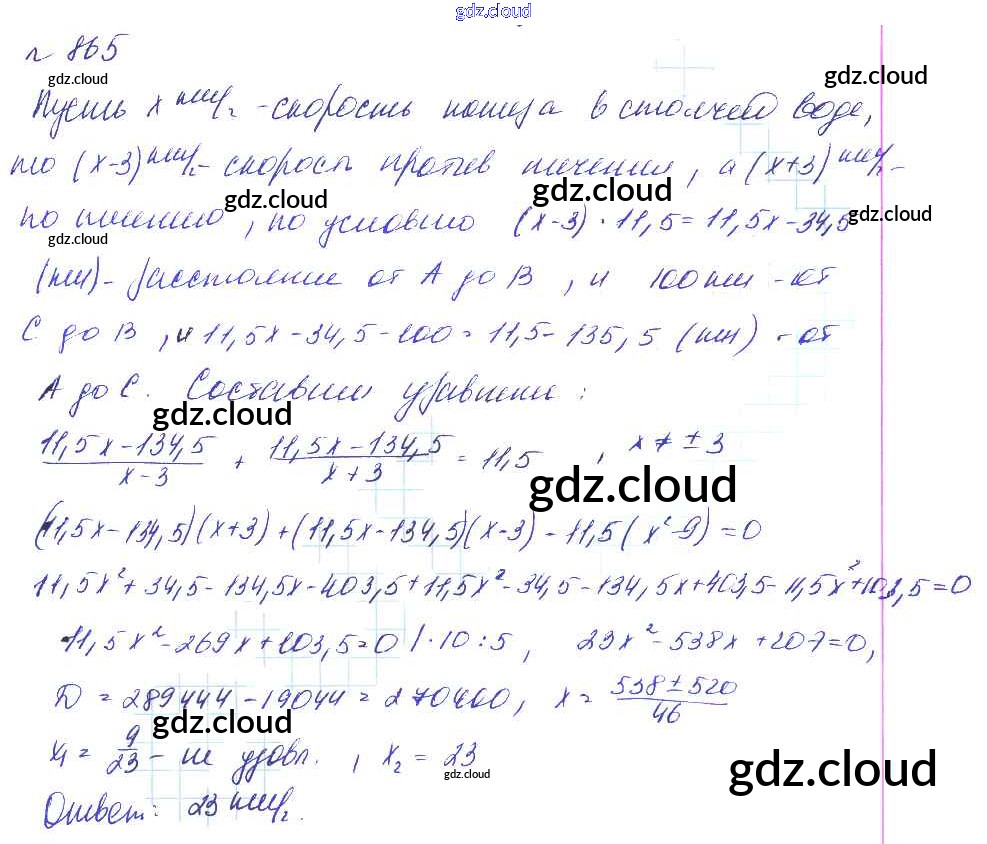 gdz.cloud
№ 865
gdz.cloud gdz.cloud
Пусть x км/ч - скорость катера в стоячей воде,
то (x-3) км/ч - скорость против течения, а (x+3) км/ч -
gdz.cloud gdz.cloud gdz.cloud
по течению, по условию (x-3) · 11,5 = 11,5x - 34,5
gdz.cloud
(км) - расстояние от A до B, и 100 км - от
C до B, и 11,5x - 34,5 - 100 = 11,5 - 135,5 (км) - от
A до C. Составим уравнение:
gdz.cloud
(11,5x - 134,5)/(x-3) + (11,5x - 134,5)/(x+3) = 11,5, x ≠ ±3
gdz.cloud
(11,5x - 134,5)(x+3) + (11,5x - 134,5)(x-3) - 11,5(x² - 9) = 0
11,5x² + 34,5 - 134,5x - 403,5 + 11,5x² - 34,5 - 134,5x + 403,5 - 11,5x² + 103,5 = 0
11,5x² - 269x + 103,5 = 0 | · 10 : 5, 23x² - 538x + 207 = 0,
Д = 289444 - 19044 = 270400, x = (538 ± 520)/46
gdz.cloud
x₁ = 9/23 - не удовл., x₂ = 23
gdz.cloud gdz.cloud
Ответ: 23 км/ч.